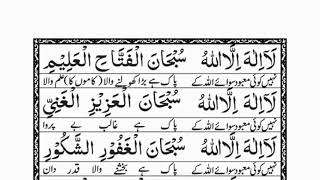 لَآ اِلٰهَ اِلَّا اللهُ سُبْحَانَ الْفَتَّاحِ الْعَلِيْمِ
نہیں کوئی معبود سوائے اللہ کے پاک ہے بڑا کھولنے والا (کاموں کا) علم والا
لَآ اِلٰهَ اِلَّا اللهُ سُبْحَانَ الْعَزِيْزِ الْغَنِيِّ
نہیں کوئی معبود سوائے اللہ کے پاک ہے غالب بے پروا
لَآ اِلٰهَ اِلَّا اللهُ سُبْحَانَ الْغَفُوْرِ الشَّكُوْرِ
نہیں کوئی معبود سوائے اللہ کے پاک ہے بخشنے والا قدر دان